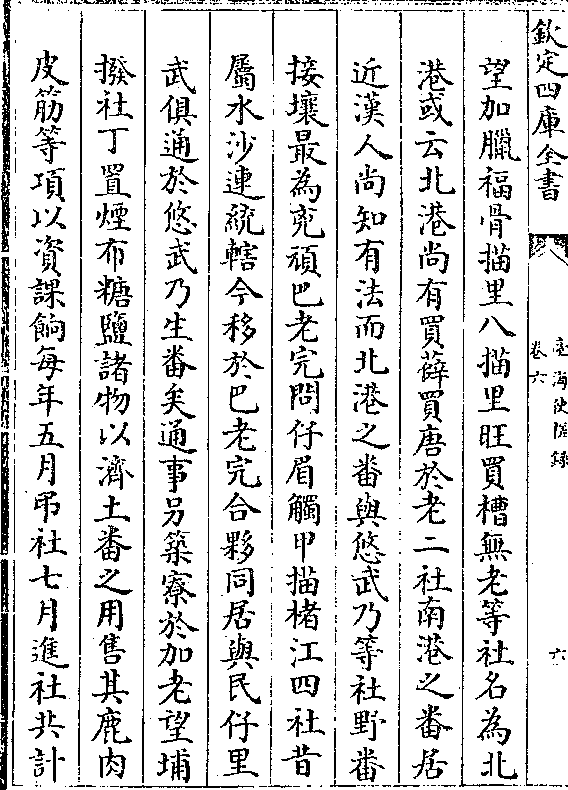 欽定四庫全書
臺海使槎錄
卷六
六
望加臘福骨描里八描里旺買槽無老等社名為北
港或云北港尚有買薛買唐於老二社南港之番居
近漢人尚知有法而北港之番與悠武乃等社野番
接壤最為兇頑巴老完問仔眉觸甲描楮江四社昔
屬水沙連統轄今移於巴老完合夥同居與民仔里
武俱通於悠武乃生番矣通事另築寮於加老望埔
撥社丁置煙布糖鹽諸物以濟土番之用售其鹿肉
皮筋等項以資課餉每年五月弔社七月進社共計